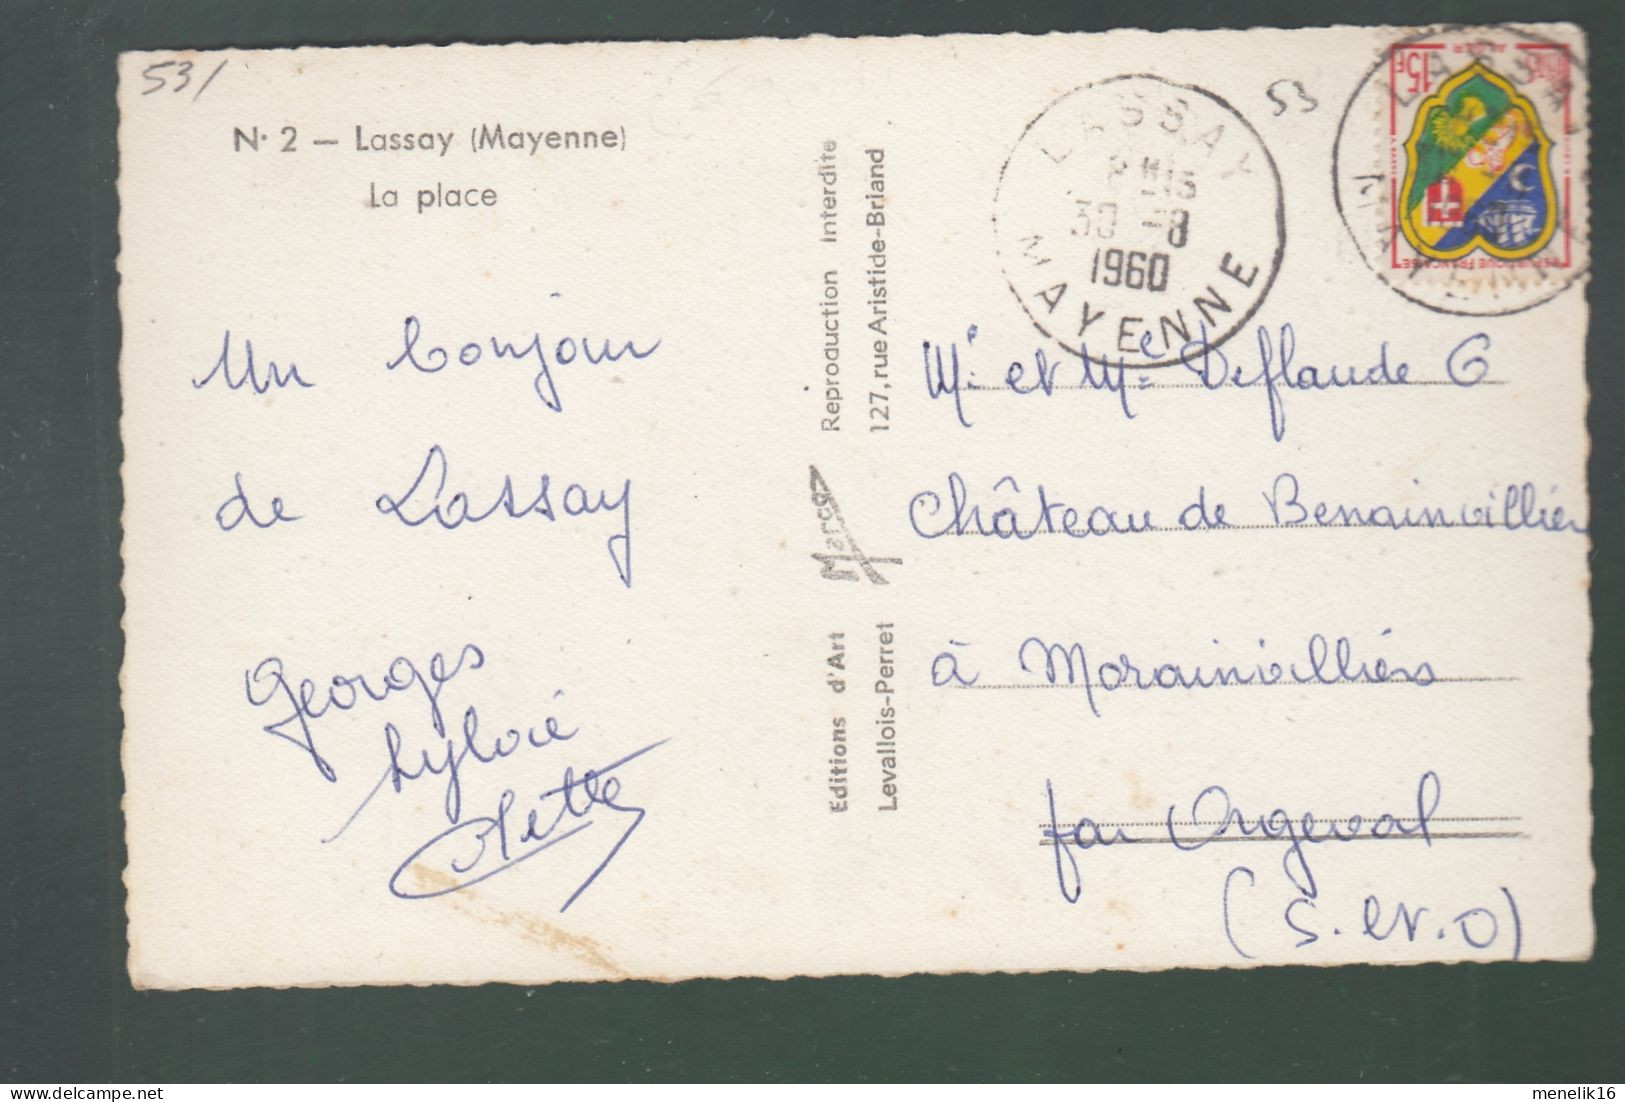 53/
N° 2 — Lassay (Mayenne)
La place
Un bonjour
de Lassay
Georges
Sylvie
Odette
Reproduction Interdite
127, rue Aristide-Briand
Marco
Editions d'Art
Levallois-Perret
LASSAY
30 -8
1960
MAYENNE
53
15F
ALGER
REPUBLIQUE FRANÇAISE
Mr et Mme Deflaude G
Château de Benainvillier
à Morainvilliers
par Orgeval
(S. et. O)
menelik16